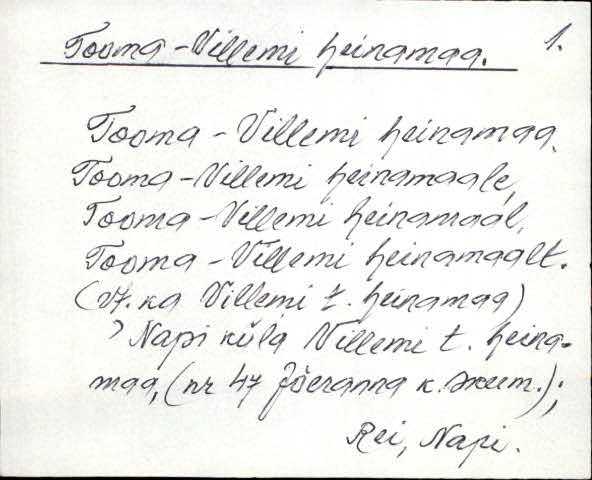 Tooma-Villemi heinamaa. 1.
Tooma-Villemi heinamaa,
Tooma-Villemi heinamaale,
Tooma-Villemi heinamaal,
Tooma-Villemi heinamaalt.
(vt. ka Villemi t. heinamaa)
Napi küla Villemi t. heina-
maa, (nr 47 Jõeranna k. skeem.);
Rei, Napi.